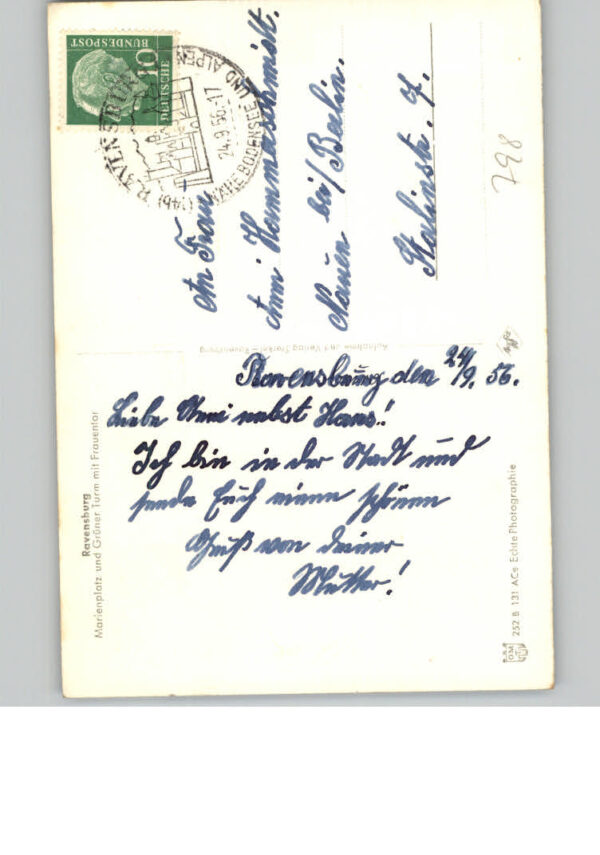 Ravensburg den 24/9. 56.
Liebe Anni nebst Hans!
Ich bin in der Stadt und
sende Euch einen schönen
Gruß von deiner
Mutter!
An Frau
Anni Hammerschmidt.
Nauen bei/Berlin.
Stalinstr. 7.
798
DEUTSCHE
BUNDESPOST
10
RAVENSBURG
24.9.56.-17
NAHE BODENSEE UND ALPEN
Ravensburg
Marienplatz und Grüner Turm mit Frauentor
252 B 131 ACe Echte Photographie